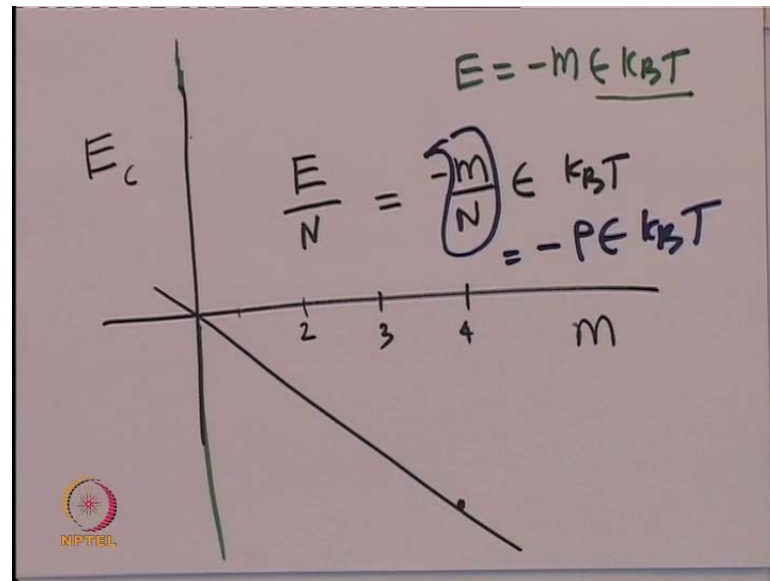 E = -m ϵ KBT
Ec
E/N = -m/N ϵ KBT
= - ρ ϵ KBT
2 3 4 m
NPTEL